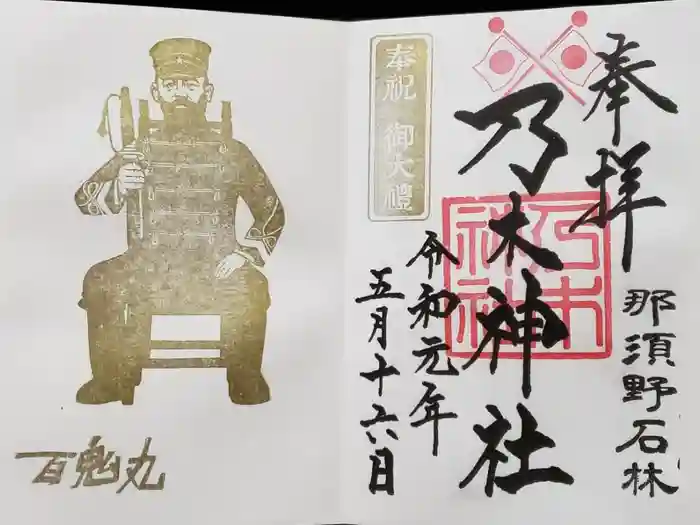 奉拝
那須野石林
乃木神社
乃木
神社
奉祝 御大禮
令和元年
五月十六日
百鬼丸